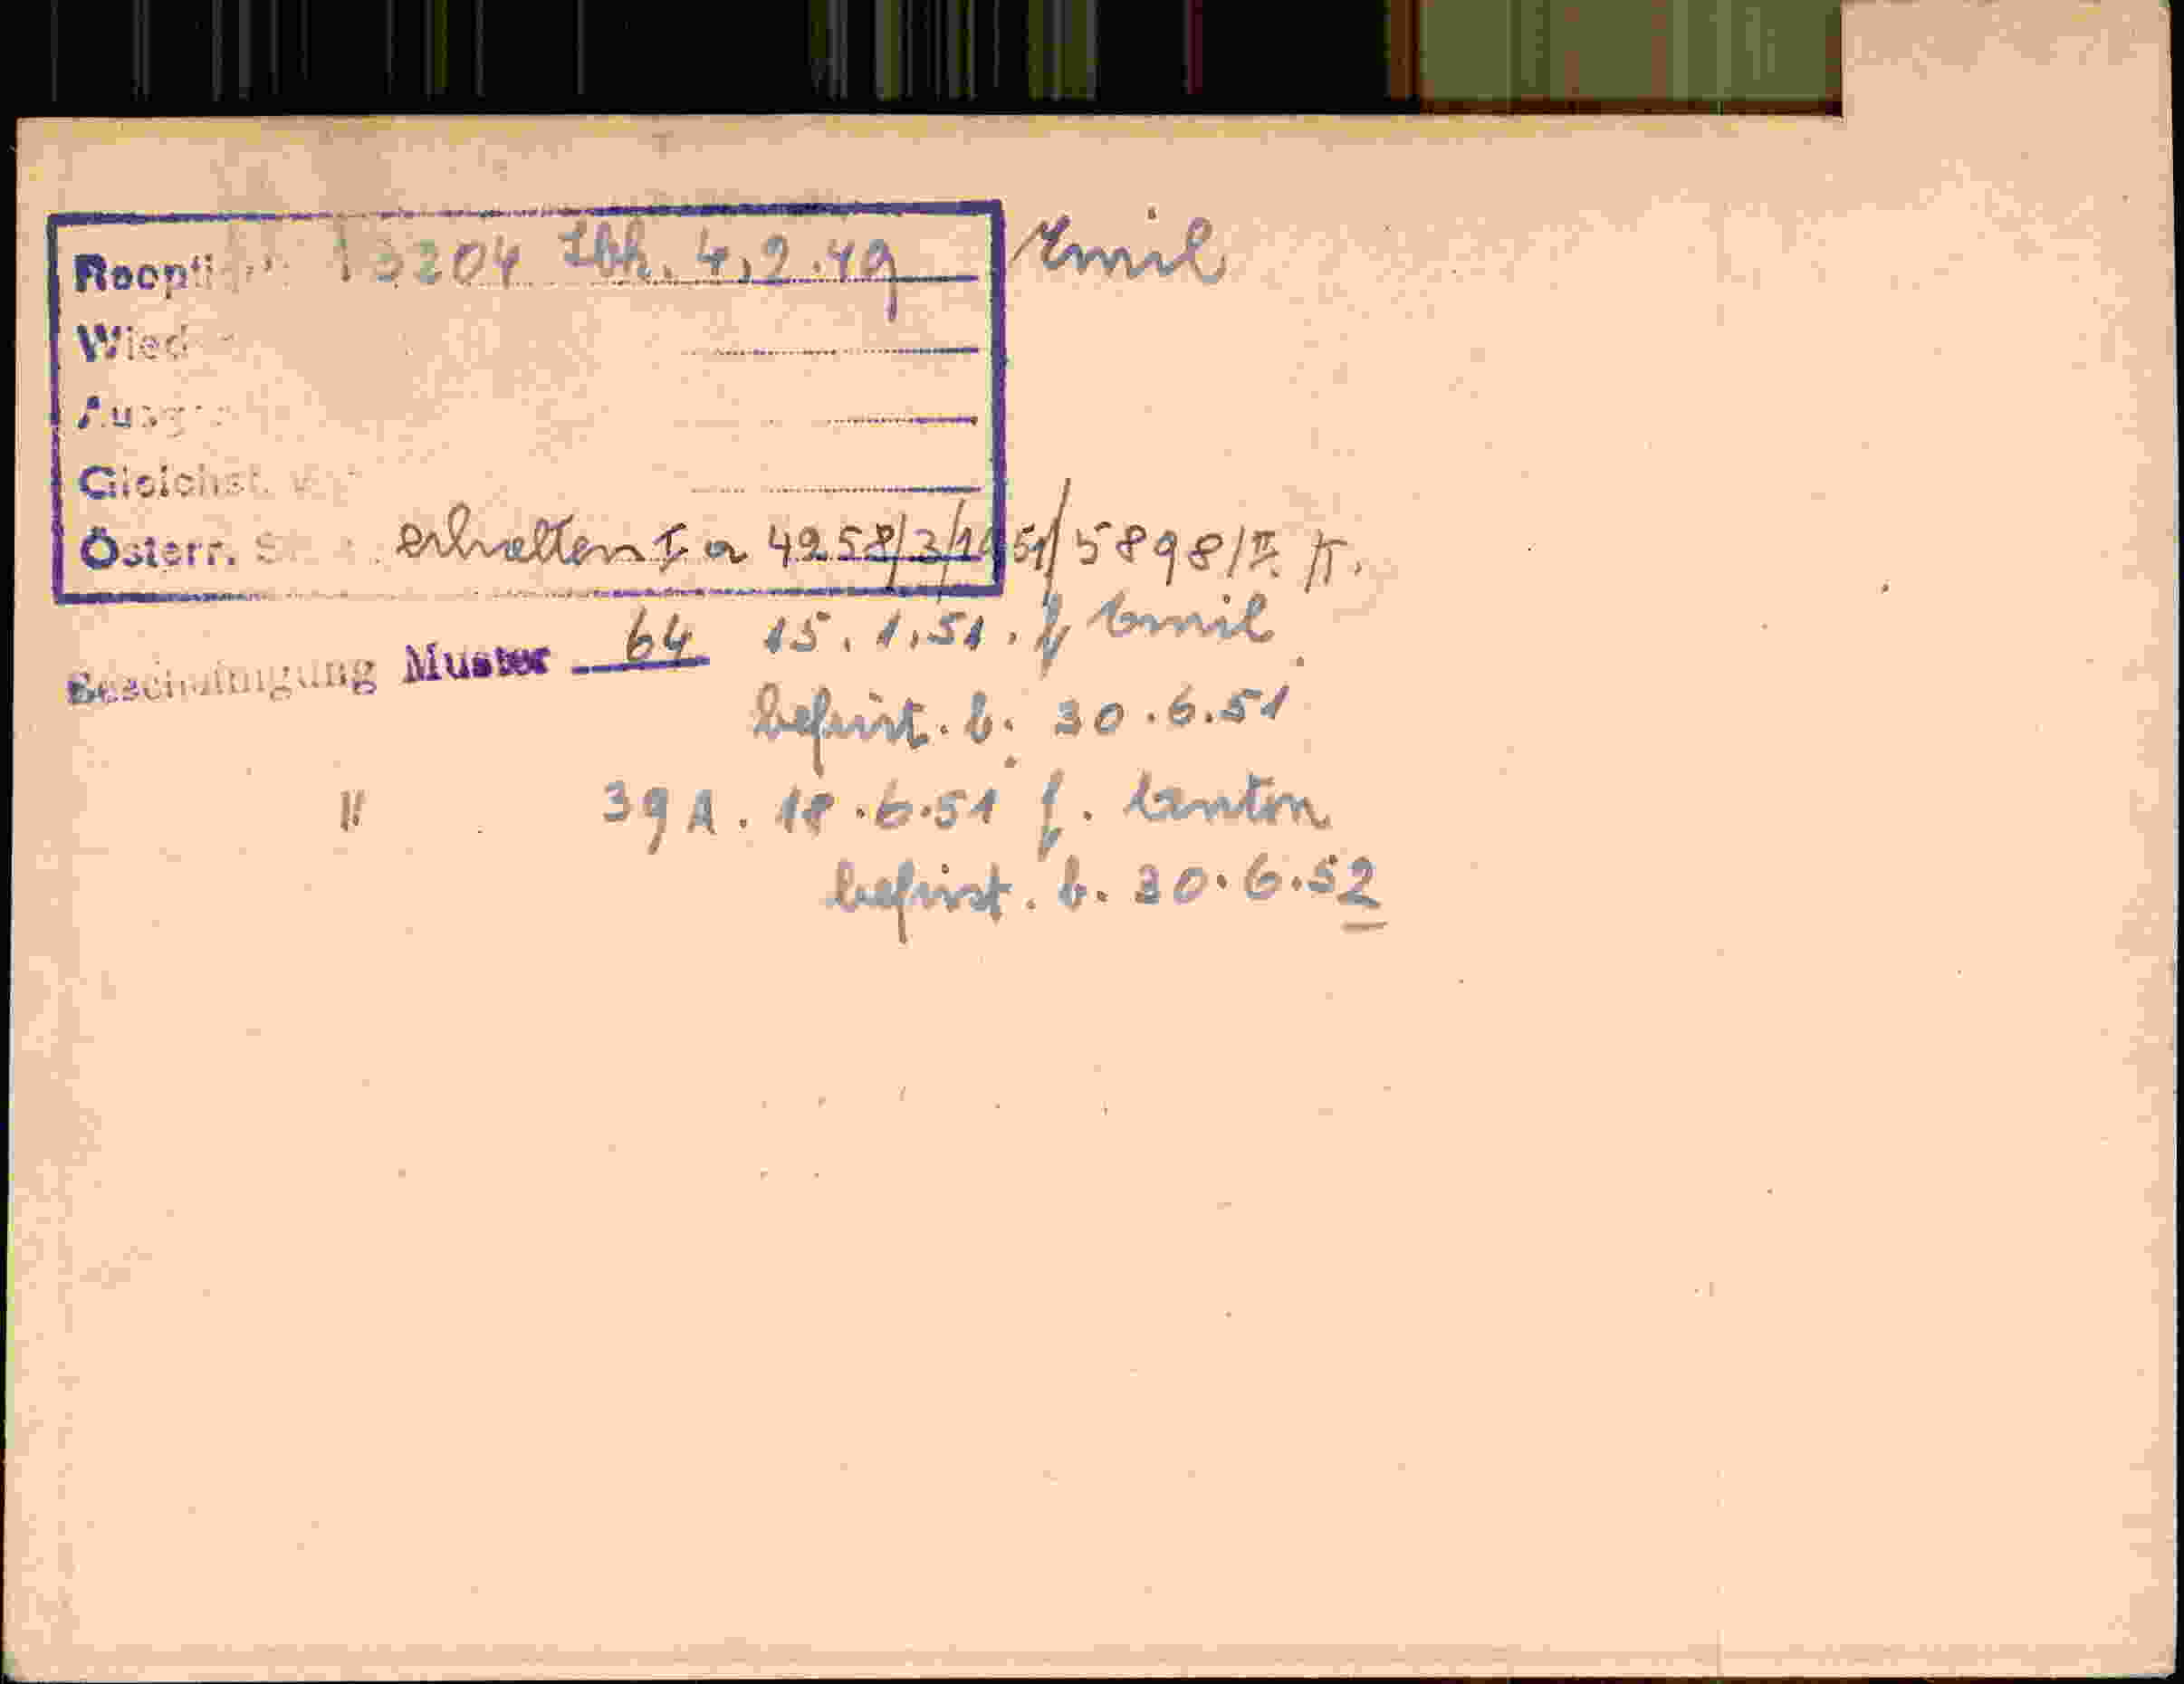 Reopti 13204 Ibk. 4,2.49 Emil
Wied
Ausge
Gleichst.
Österr. St erhalten I a 4258/3/1951/5898/II
Bescheinigung Muster 64 15.1.51. f Emil
befrist. b. 30.6.51
" 39 A. 18.6.51 f. Anton
befrist. b. 30.6.52